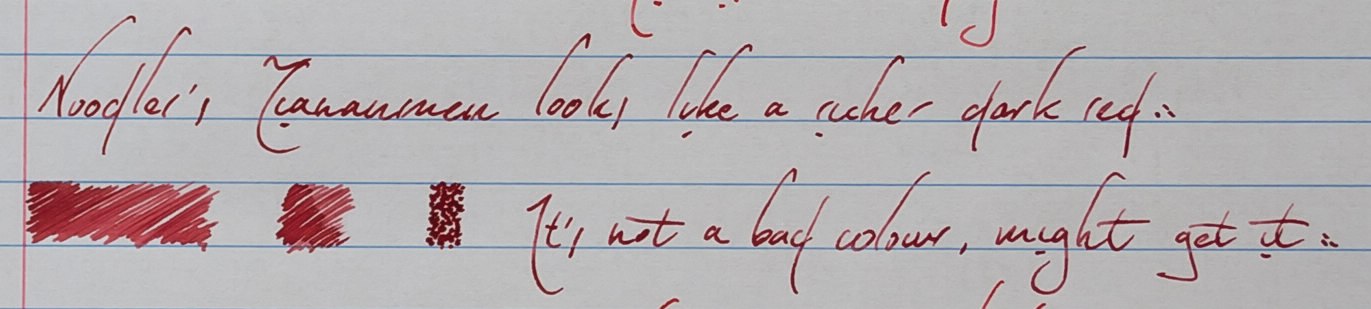 Noodler's Tiananmen looks like a richer dark red..
It's not a bad colour, might get it..